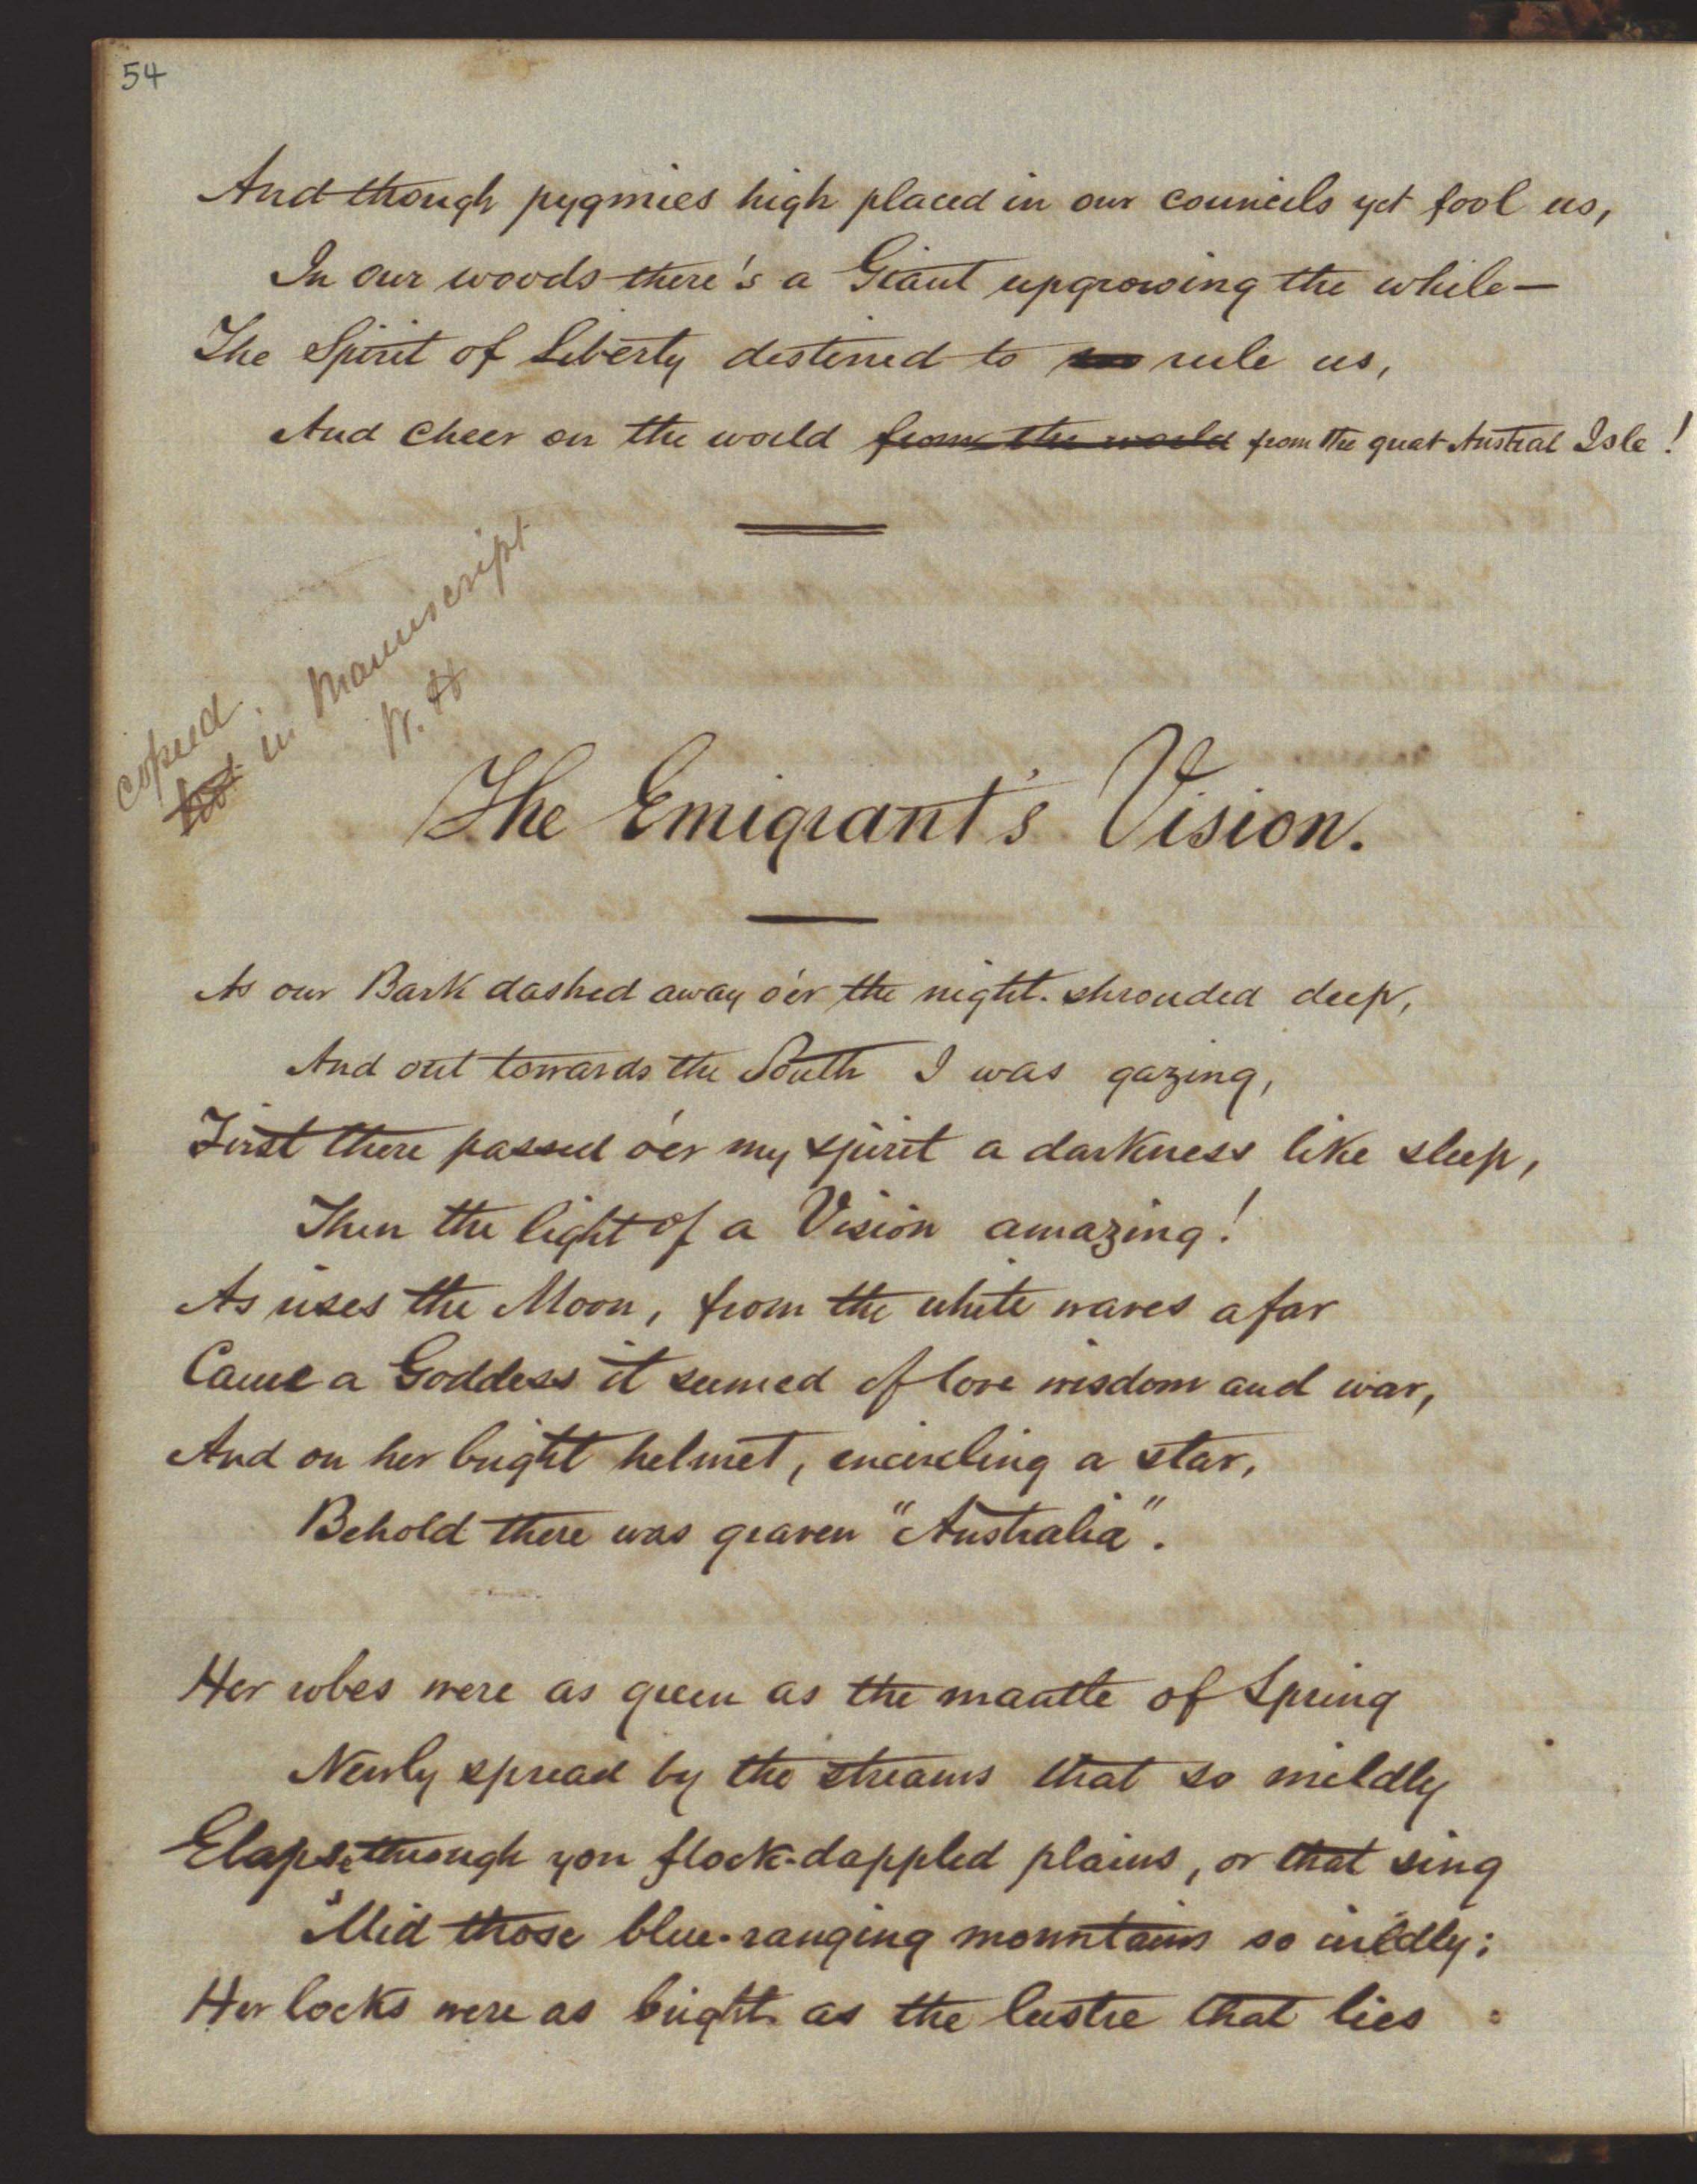 54
And though pygmies high placed in our councils yet fool us,
In our woods there's a Giant upgrowing the while—
The Spirit of Liberty destined to rule us,
And cheer on the world from the world from the great Austral Isle!
copied
not in Manuscript
W. H
The Emigrant's Vision.
As our Bark dashed away o'er the night-shrouded deep,
And out towards the South I was gazing,
First there passed o'er my spirit a darkness like sleep,
Then the light of a Vision amazing!
As rises the Moon, from the white waves afar
Came a Goddess it seemed of love wisdom and war,
And on her bright helmet, encircling a star,
Behold there was graven "Australia".
Her robes were as green as the mantle of Spring
Newly spread by the streams that so mildly
Elapse through yon flock-dappled plains, or that sing
'Mid those blue-ranging mountains so wildly;
Her locks were as bright as the lustre that lies